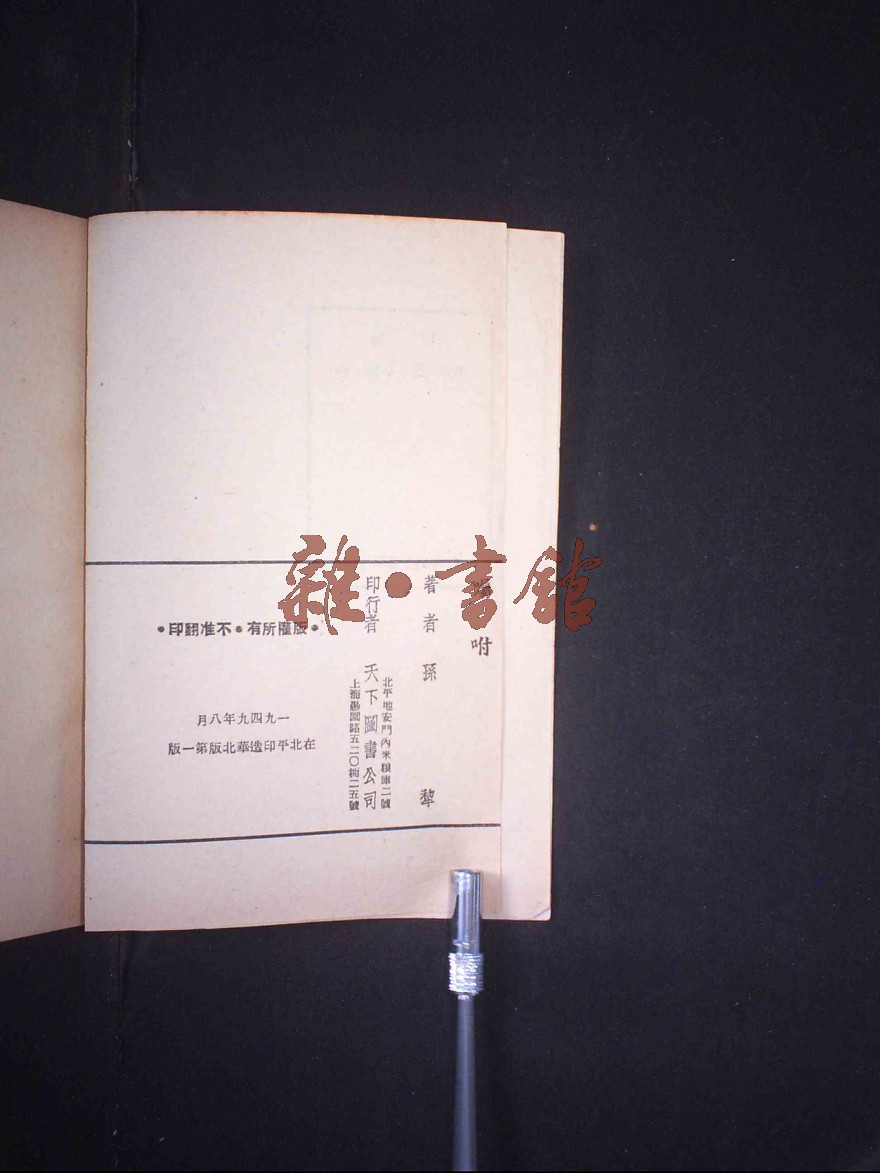 囑咐
著者 孫犂
北平地安門內米糧庫二號
印行者 天下圖書公司
上海愚園路五二〇衖二五號
●版權所有●不准翻印●
一九四九年八月
在北平印造華北版第一版
雜·書館